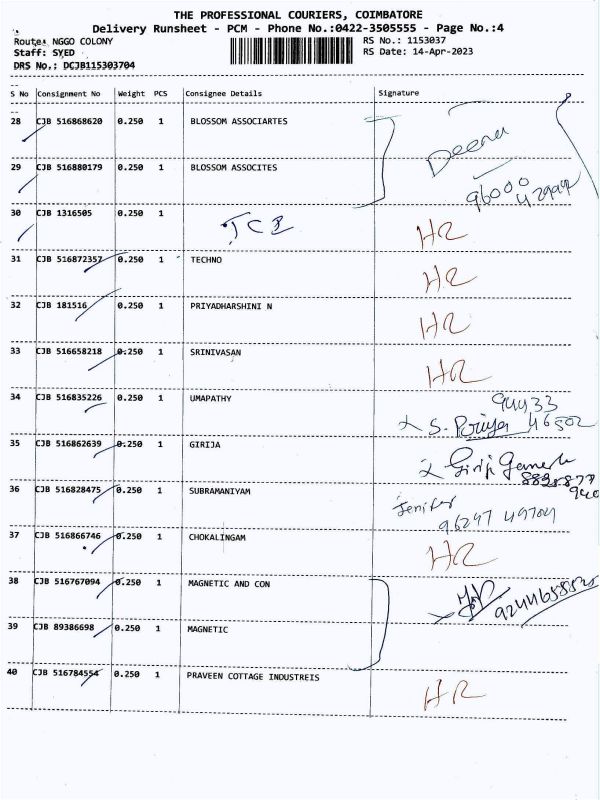 THE PROFESSIONAL COURIERS, COIMBATORE
Delivery Runsheet - PCM - Phone No.:0422-3505555 - Page No.:4
Route: NGGO COLONY RS No.: 1153037
Staff: SYED RS Date: 14-Apr-2023
DRS No.: DCJB115303704
S No Consignment No Weight PCS Consignee Details Signature
28 CJB 516868620 0.250 1 BLOSSOM ASSOCIARTES
Deena
29 CJB 516880179 0.250 1 BLOSSOM ASSOCITES
96000
30 CJB 1316505 0.250 1 TCI HR
31 CJB 516872357 0.250 1 TECHNO HR
32 CJB 181516 0.250 1 PRIYADHARSHINI N HR
33 CJB 516658218 0.250 1 SRINIVASAN HR
34 CJB 516835226 0.250 1 UMAPATHY 94433
S. Priya 46502
35 CJB 516862639 0.250 1 GIRIJA Girija Ganesh
36 CJB 516828475 0.250 1 SUBRAMANIYAM Jenifer
96297 49704
37 CJB 516866746 0.250 1 CHOKALINGAM HR
38 CJB 516767094 0.250 1 MAGNETIC AND CON
39 CJB 89386698 0.250 1 MAGNETIC
40 CJB 516784554 0.250 1 PRAVEEN COTTAGE INDUSTREIS HR